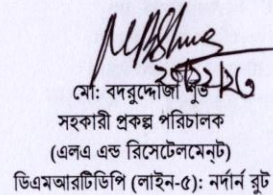 মো: বদরুদ্দোজা
সহকারী প্রকল্প পরিচালক
(এলএ এন্ড রিসেটেলমেন্ট)
ডিএমআরটিডিপি (লাইন-৫): নর্দার্ন রুট